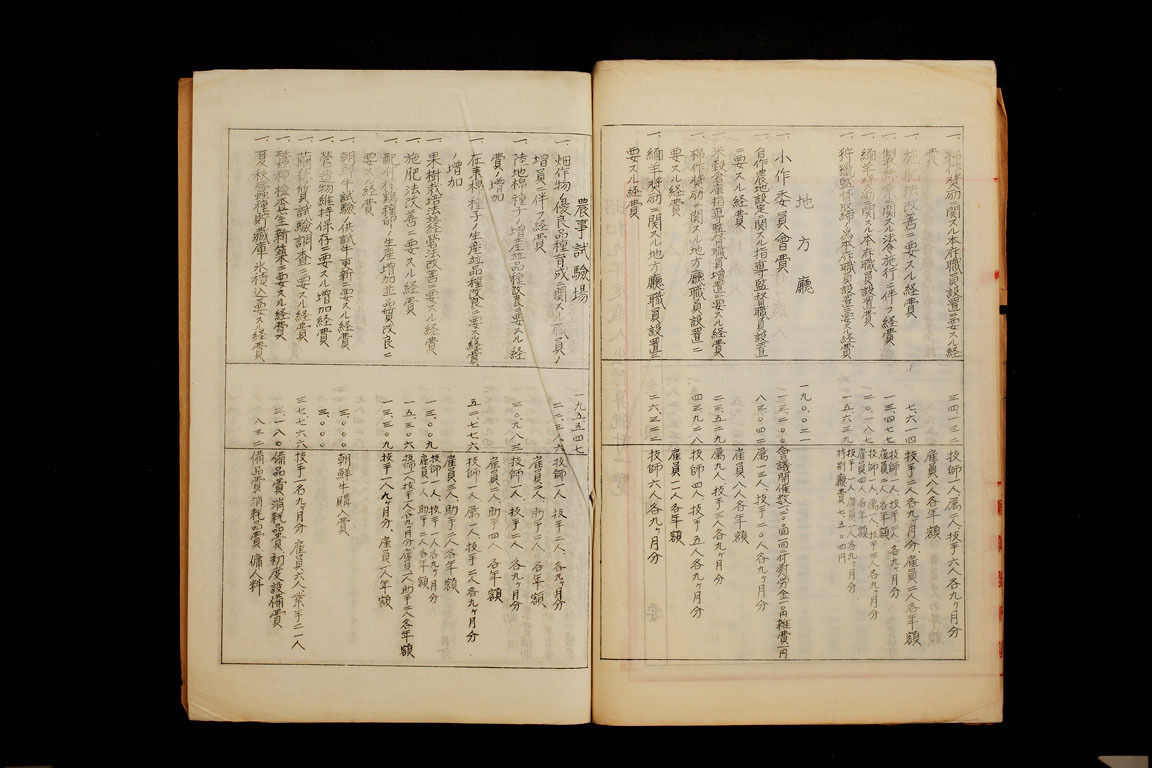 一、棉作奨励ニ関スル本府職員設置ニ要スル経
費
三四、一三二
技師一人属二人、技手六人各九ヶ月分
雇員八人各年額
一、施肥法改善ニ要スル経費
七、六一四
技手二人各九ヶ月分、雇員二人各年額
一、関スル法令施行ニ伴フ経費
一三、四七七
一、緬羊奨励ニ関スル本府職員設置費
二〇、一八七
一、狩猟監督取締ノ為本府職員設置ニ要スル経費
一五、六三二
特別廳費七五〇四円
地方廳
一九〇、〇二一
一、小作委員會費
一三、二〇〇
一、自作農地設定ニ関スル指導監督職員設置
ニ要スル経費
八三、〇四二
属一三人、技手二〇人各九ヶ月分
雇員八人各年額
一、米穀倉庫指導監督職員増置ニ要スル経費
二三、五二九
属九人、技手三人各九ヶ月分
一、棉作奨励ニ関スル地方廳職員設置ニ
要スル経費
四三、九二八
技師四人、技手一五人各九ヶ月分
雇員一一人各年額
一、緬羊奨励ニ関スル地方廳職員設置ニ
要スル経費
二六、三二二
技師六人各九ヶ月分
農事試験場
一九五、五四七
一、畑作物ノ優良品種育成ニ関スル職員ノ
増員ニ伴フ経費
二二、三八六
技師一人、技手二人、各九ヶ月分
雇員二人、助手三人、各年額
一、陸地棉種子ノ増産並品種改良ニ要スル経
費ノ増加
三〇、九八三
技師一人、技手二人、各九ヶ月分
雇員二人、助手四人、各年額
一、在来棉種子ノ生産並品種改良ニ要スル経費
ノ増加
五二、七七六
技師一人、属一人、技手二人各九ヶ月分
雇員三人助手三人各年額
一、果樹栽培法及経営法改善ニ要スル経費
一三、〇〇九
技師一人、技手一人各九ヶ月分
雇員一人、助手二人各年額
一、施肥法改善ニ要スル経費
一五、三〇六
一、配付種鶏種卵ノ生産増加並品質改良ニ
要スル経費
一三、三〇九
技手一人九ヶ月分、雇員一人年額
一、朝鮮牛試験ノ供試牛更新ニ要スル経費
三、〇〇〇
朝鮮牛購入費
一、営造物維持保存ニ要スル増加経費
三、〇〇〇
一、繭質試験調査ニ要スル経費
三七、七六六
技手一名九ヶ月分、雇員六人業手二一人
一、蚕種検査室新築ニ要スル経費
三、一八〇
備品費、消耗品費、初度設備費
一、夏秋蚕種貯蔵庫氷積込ニ要スル経費
八三二
備品費、消耗品費、傭人料